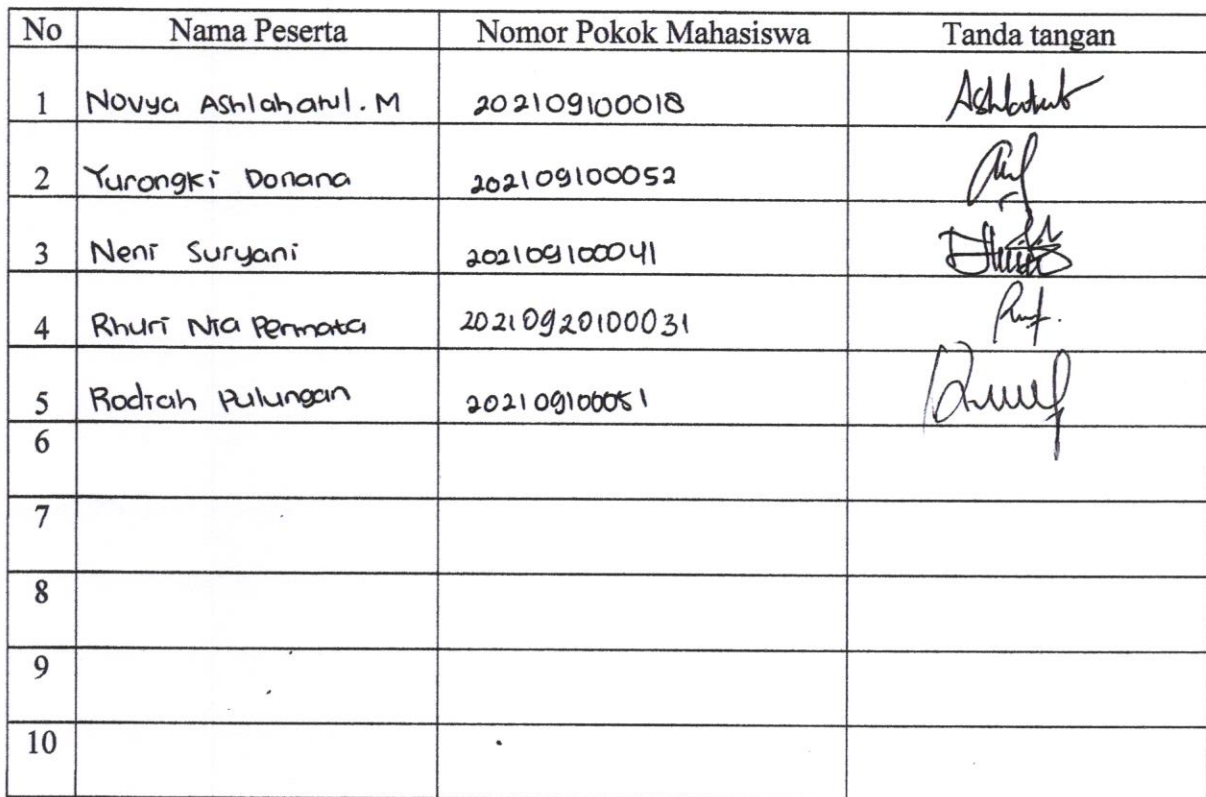 No Nama Peserta Nomor Pokok Mahasiswa Tanda tangan
1 Novya Ashlahatul. M 202109100018
2 Yurongki Donana 202109100052
3 Neni Suryani 202109100041
4 Rhuri Nia Permata 20210920100031
5 Rodiah Pulungan 202109100051
6
7
8
9
10